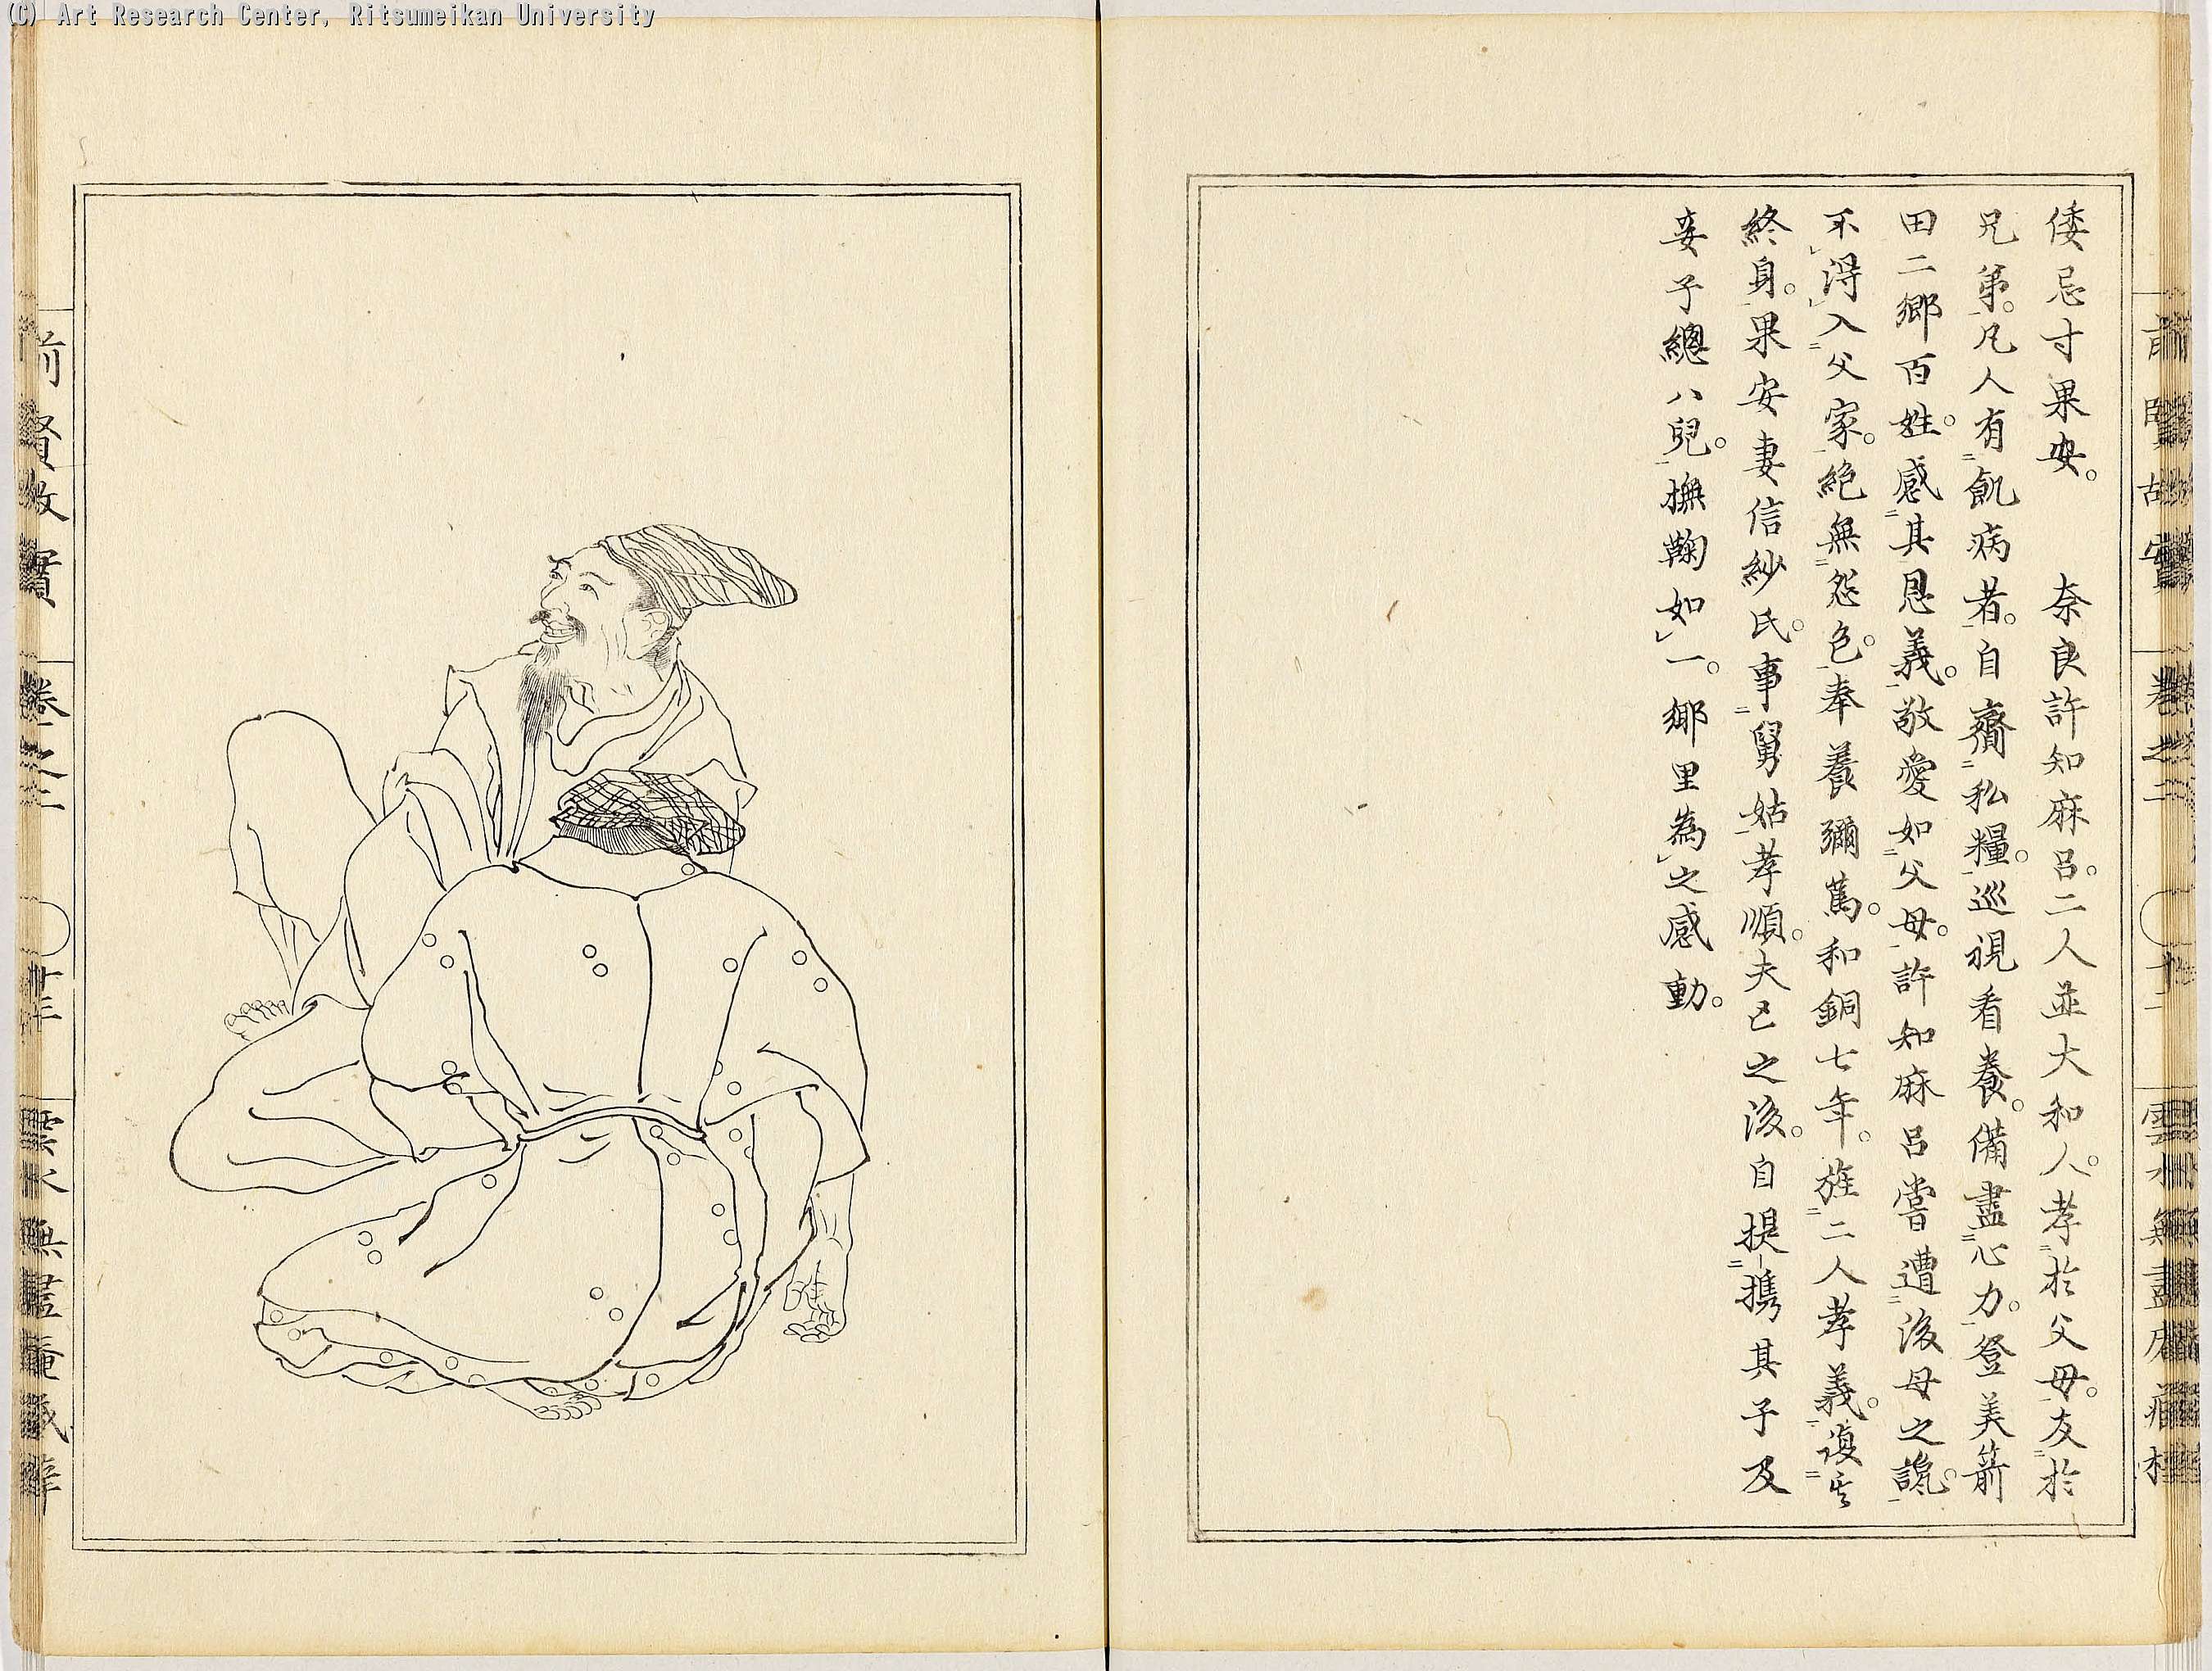 (C) Art Research Center, Ritsumeikan University
倭忌寸果安。 奈良許知麻呂。二人並大和人。孝於父母。友於
兄弟。凡人有飢病者。自齎私糧。巡視看養。備盡心力。登美箭
田二鄉百姓。感其恩義。敬愛如父母。許知麻呂嘗遭後母之讒。
不得入父家。絶無怨色。奉養彌篤。和銅七年。旌二人孝義。復其
終身。果安妻信紗氏。事舅姑孝順。夫亡之後。自提攜其子及
妾子總八兒。撫鞠如一。鄉里為之感動。
前賢故實 卷之二 雲水無盡庵藏
前賢故實 卷之二 雲水無盡